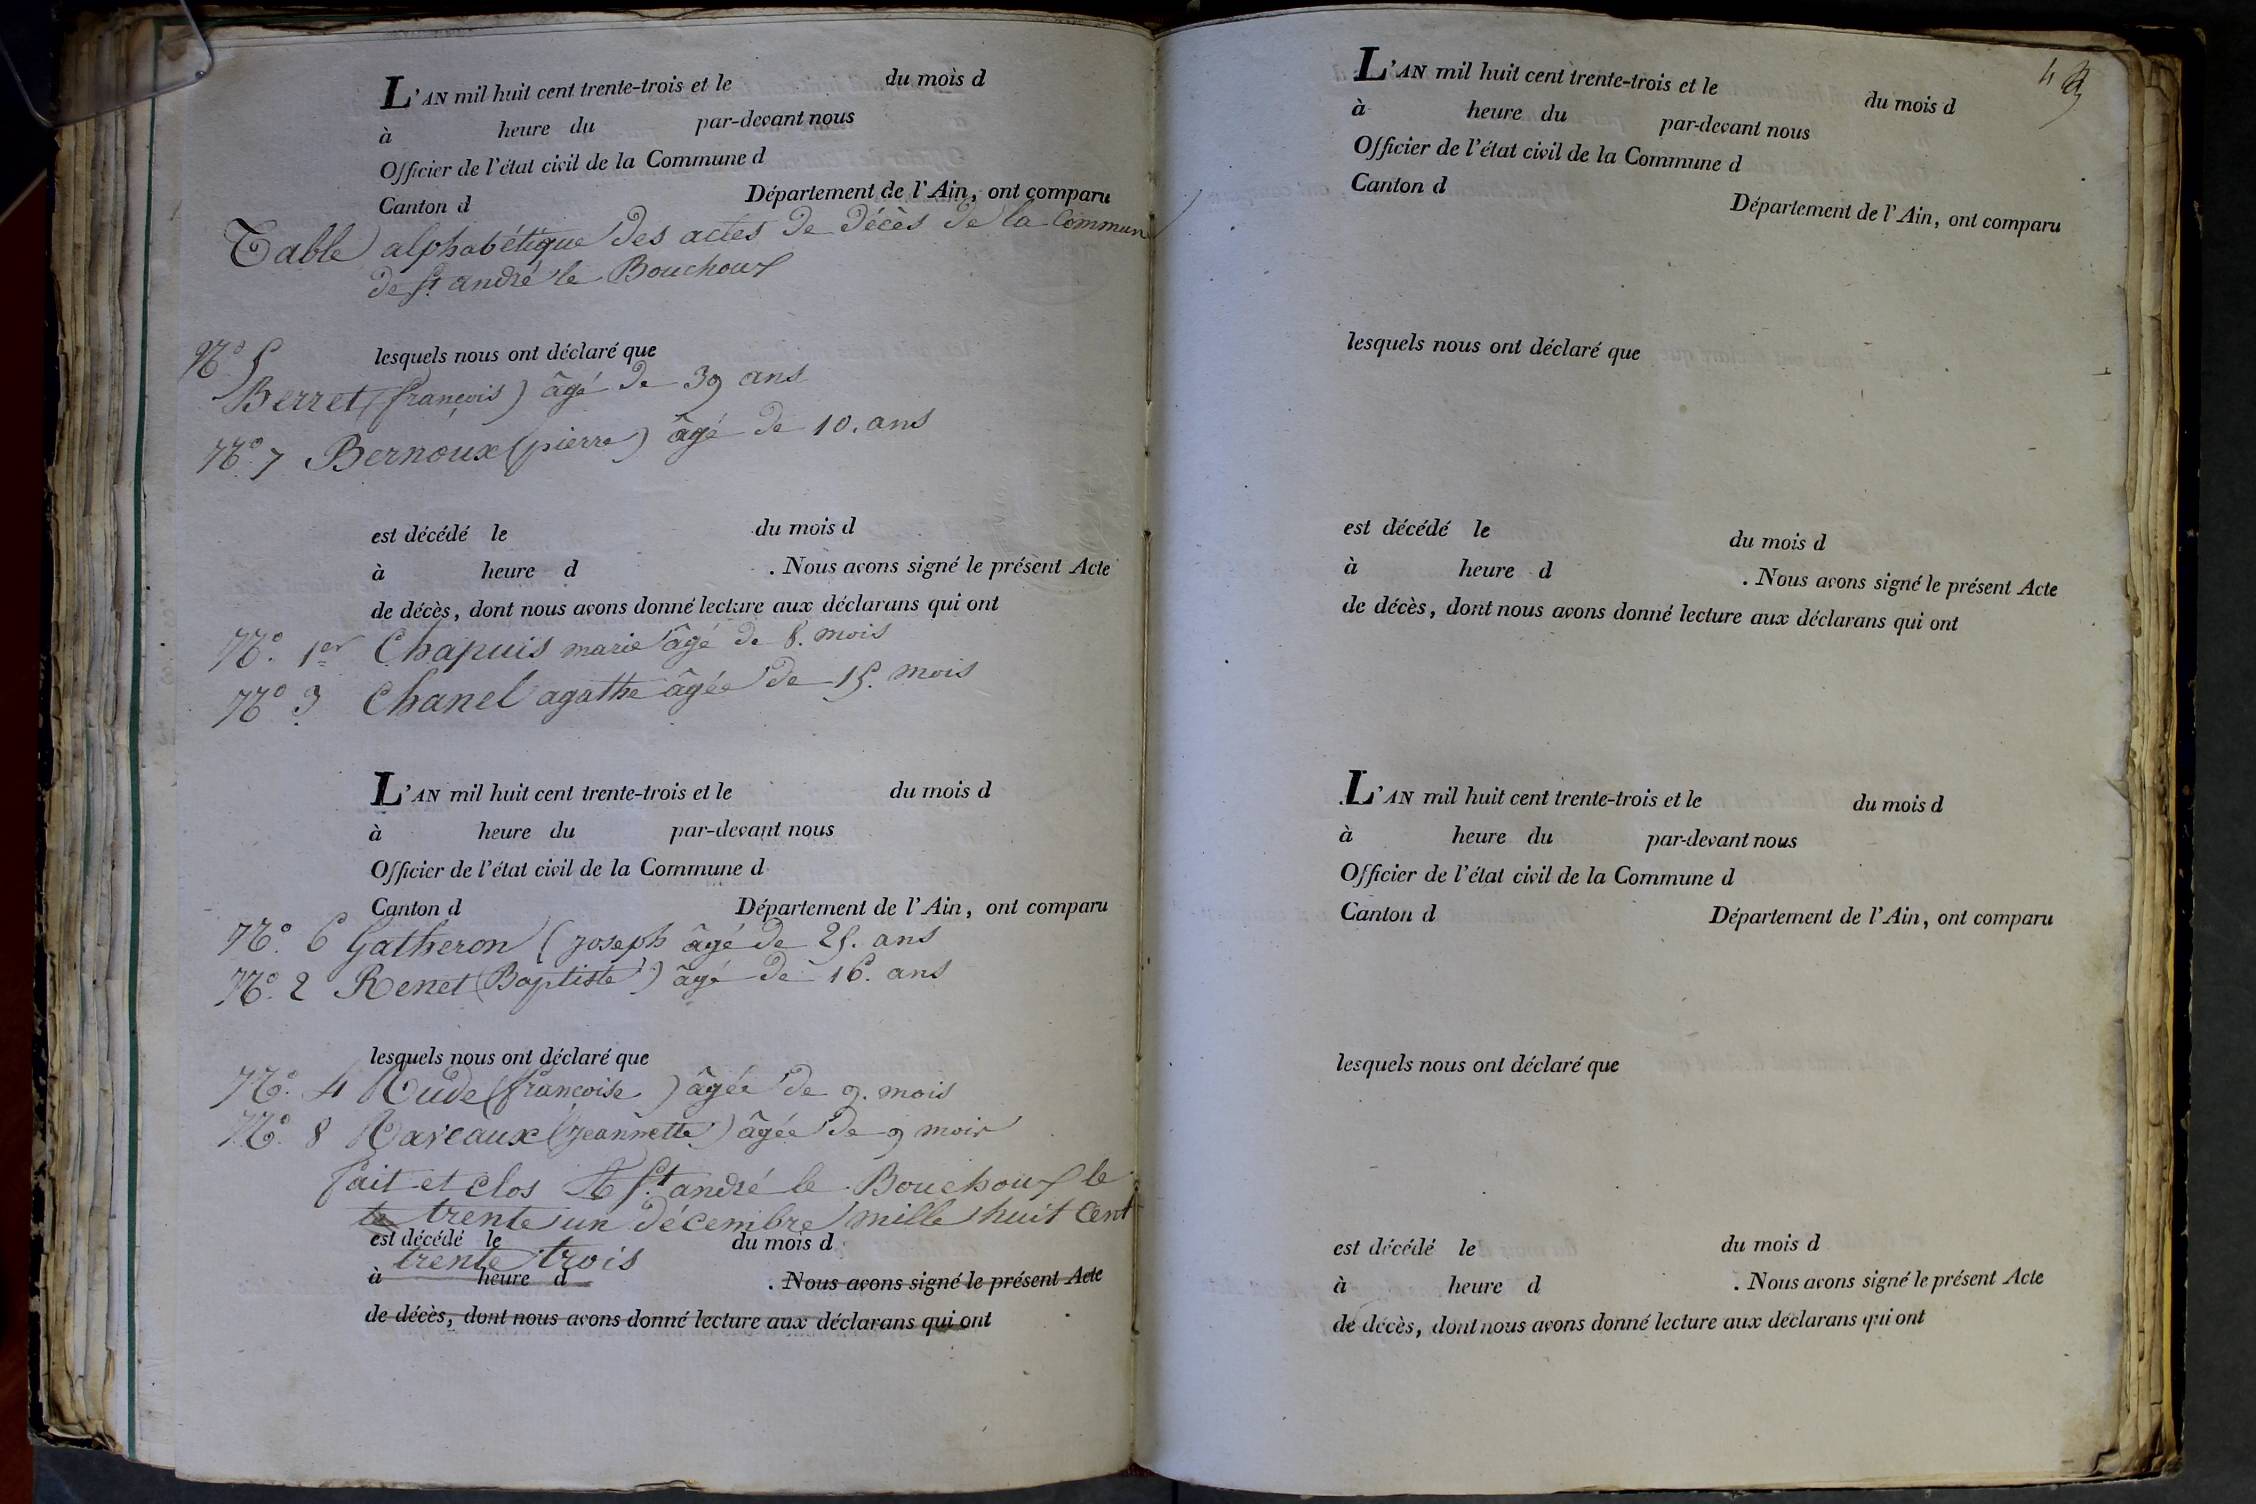 L'AN mil huit cent trente-trois et le du mois d
à heure du par-devant nous
Officier de l'état civil de la Commune d
Canton d Département de l'Ain, ont comparu
Table alphabétique des actes de décès de la Commune
de St andré le Bouchoux
lesquels nous ont déclaré que
No. 5
Berret (françois) âgé de 39 ans
No. 7 Bernoux (pierre) âgé de 10. ans
est décédé le du mois d
à heure d . Nous avons signé le présent Acte
de décès, dont nous avons donné lecture aux déclarans qui ont
No. 1er Chapuis marie âgé de 8. mois
No 3 Chanel agathe âgée de 15. mois
L'AN mil huit cent trente-trois et le du mois d
à heure du par-devant nous
Officier de l'état civil de la Commune d
Canton d Département de l'Ain, ont comparu
No. 6 Gatheron (joseph âgé de 25. ans
No. 2 Renet (Baptiste) âgé de 16. ans
lesquels nous ont déclaré que
No. 4 Rude (françoise) âgée de 9. mois
No. 8 Raveaux (jeannette) âgée de 9 mois
fait et clos A St. andré le Bouchoux le
le trente un décembre mille huit Cent
est décédé le du mois d
trente trois
à heure d . Nous avons signé le présent Acte
de décès, dont nous avons donné lecture aux déclarans qui ont
L'AN mil huit cent trente-trois et le du mois d
à heure du par-devant nous
Officier de l'état civil de la Commune d
Canton d Département de l'Ain, ont comparu
lesquels nous ont déclaré que
est décédé le du mois d
à heure d . Nous avons signé le présent Acte
de décès, dont nous avons donné lecture aux déclarans qui ont
L'AN mil huit cent trente-trois et le du mois d
à heure du par-devant nous
Officier de l'état civil de la Commune d
Canton d Département de l'Ain, ont comparu
lesquels nous ont déclaré que
est décédé le du mois d
à heure d . Nous avons signé le présent Acte
de décès, dont nous avons donné lecture aux déclarans qui ont